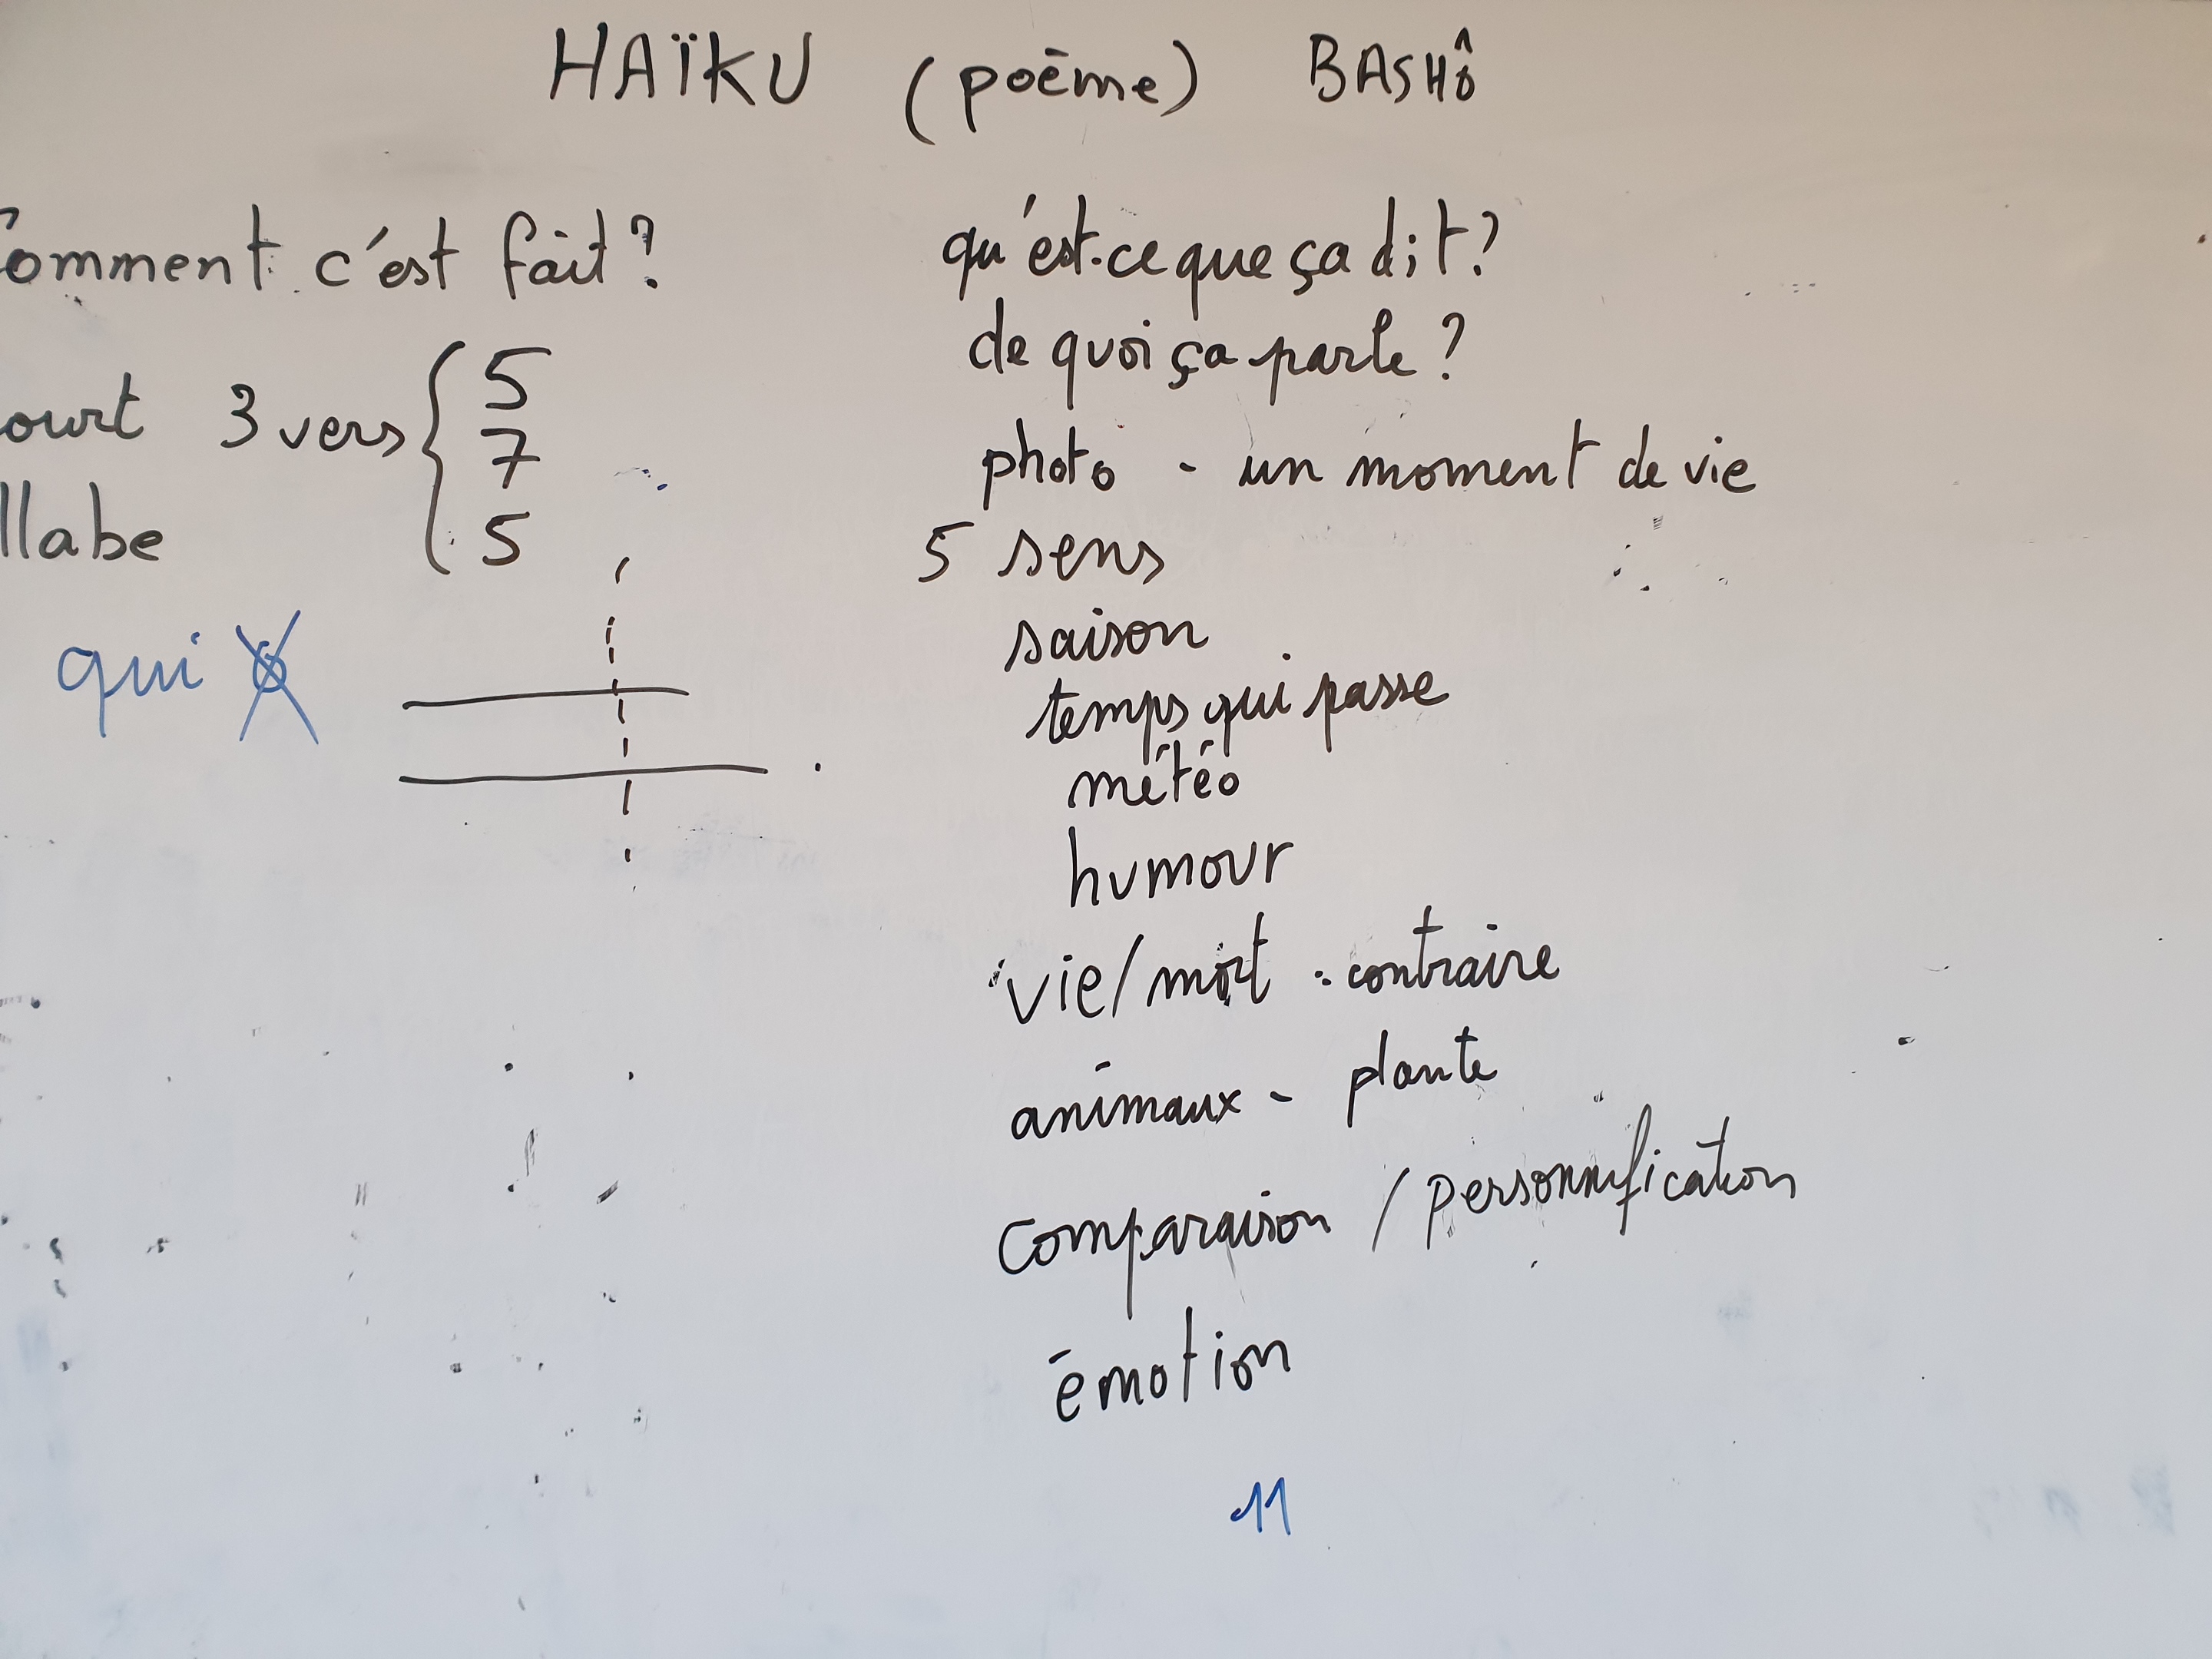 HAÏKU (poème) BASHÔ
Comment c'est fait ?
ourt 3 vers { 5
7
llabe 5
qui
qu'est-ce que ça dit ?
de quoi ça parle ?
photo - un moment de vie
5 sens
saison
temps qui passe
météo
humour
vie/mort : contraire
animaux - plante
comparaison / personnification
émotion
11